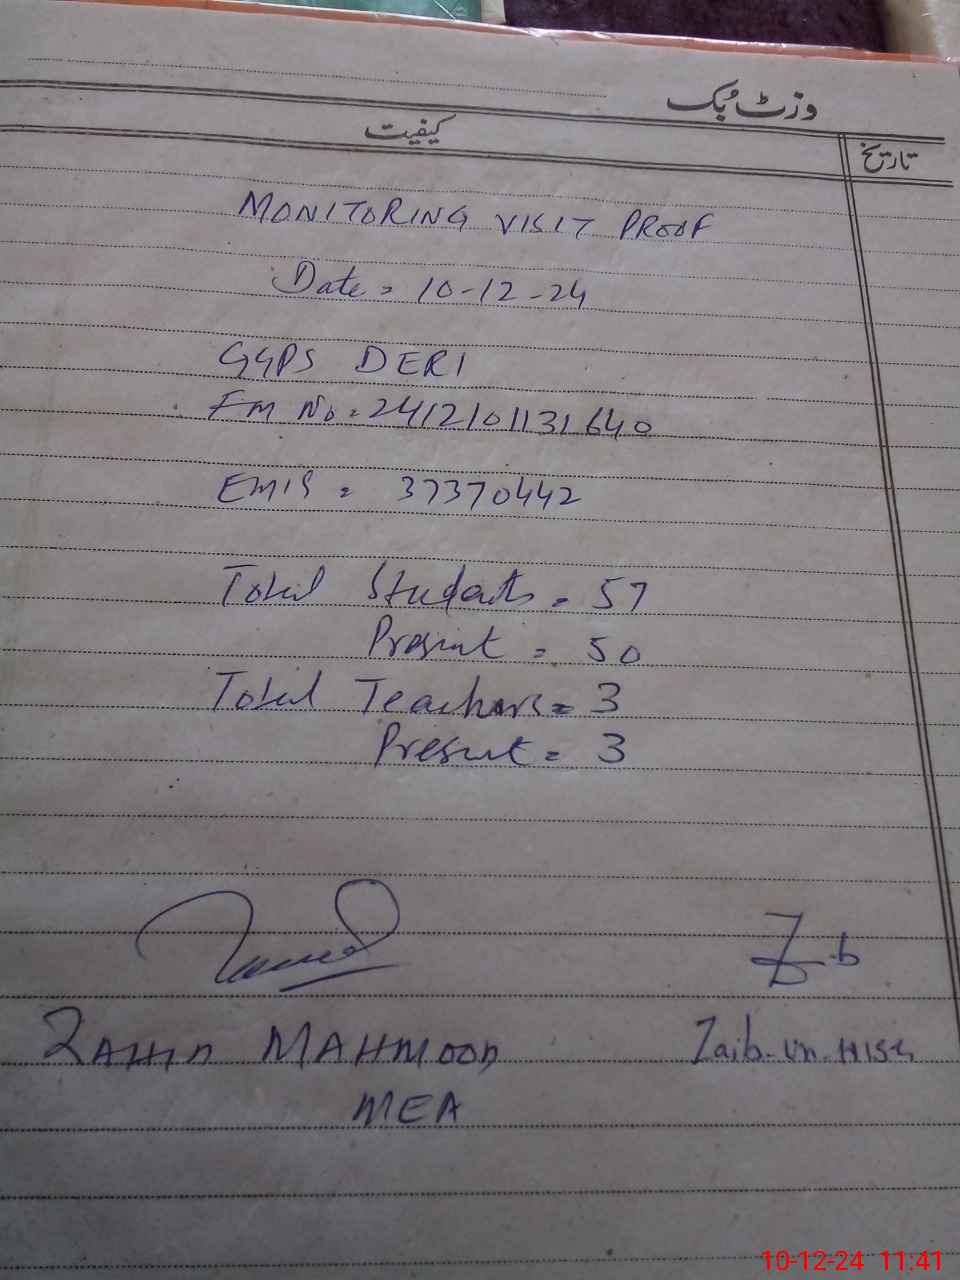 وزٹ بُک
کیفیت
تاریخ
MONITORING VISIT PROOF
Date = 10-12-24
GGPS DERI
FM No = 2412101131640
EMIS = 37370442
Total Students = 57
Present = 50
Total Teachers = 3
Present = 3
Z.b
MAHMOOD
Zaib-un-Nisa
MEA
10-12-24 11:41